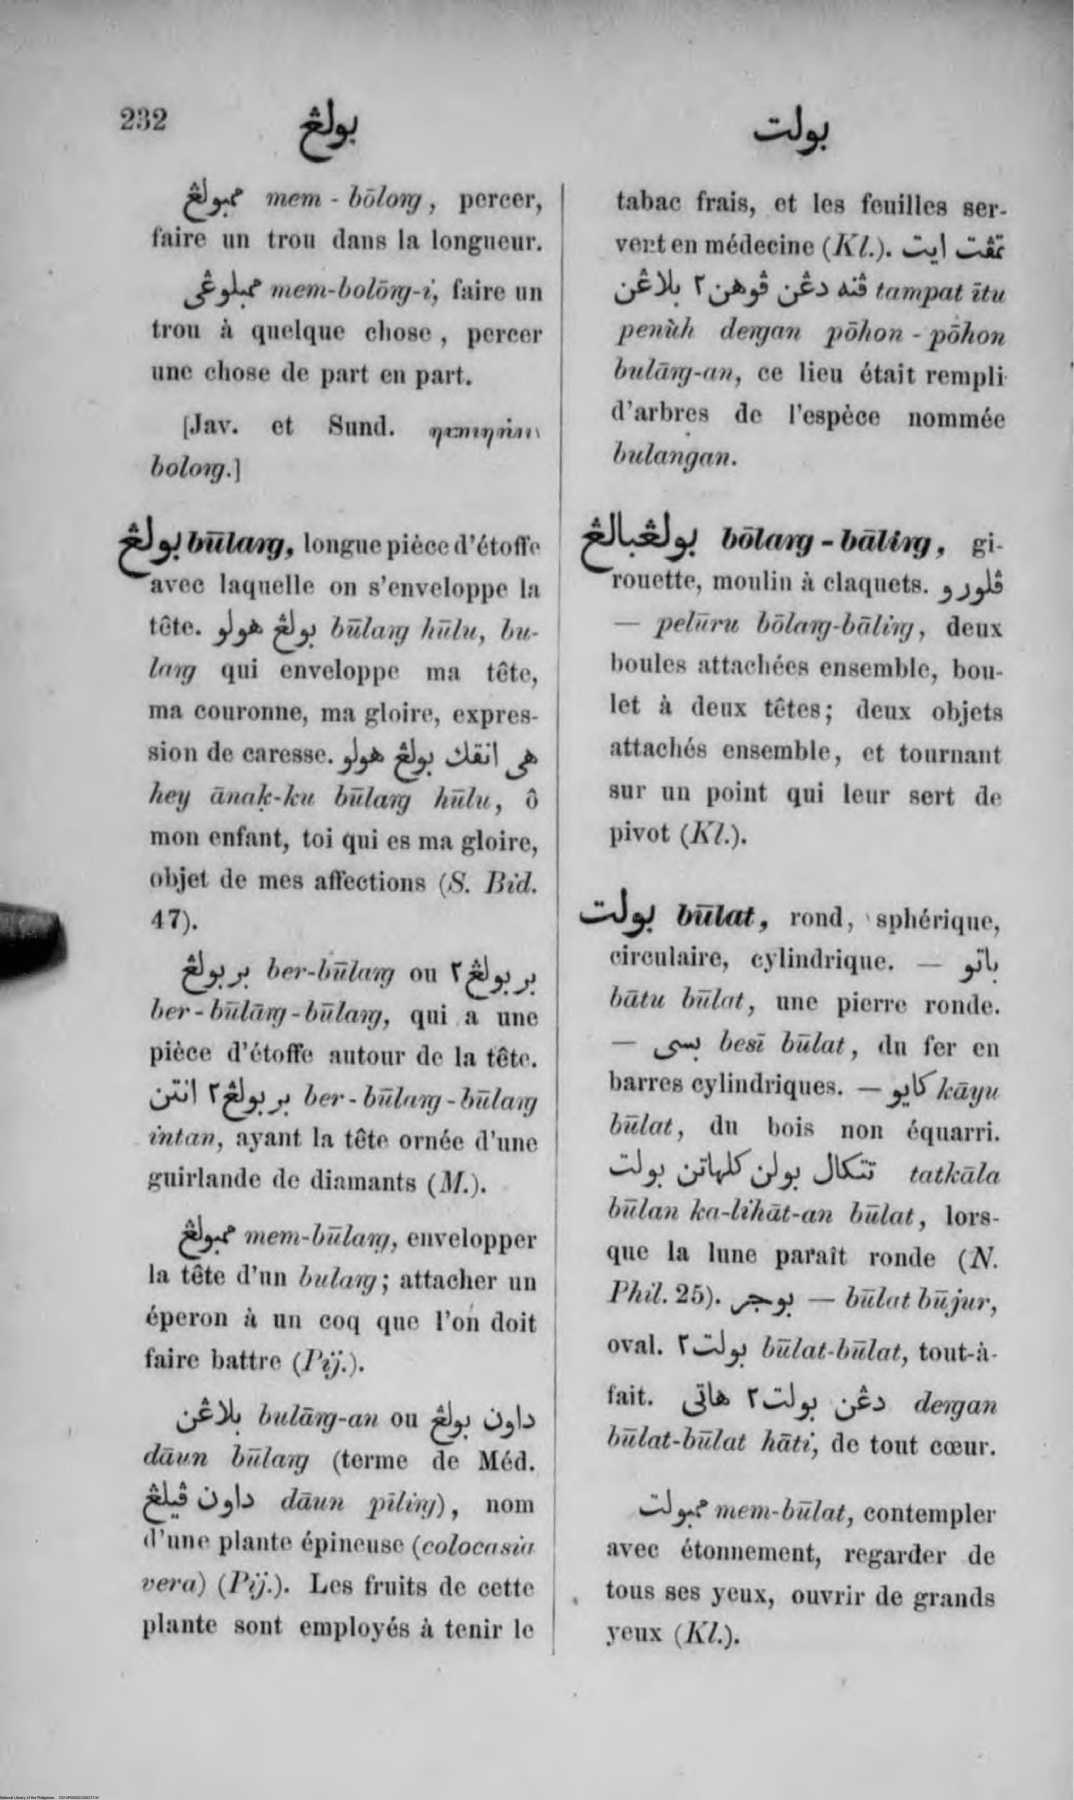 232
بولڠ
بولت
ممبولڠ mem - bōlong, percer,
faire un trou dans la longueur.
ممبلوڠي mem-bolōng-i, faire un
trou à quelque chose, percer
une chose de part en part.
[Jav. et Sund.
bolong.]
بولڠ būlang, longue pièce d'étoffe
avec laquelle on s'enveloppe la
tête. بولڠ هولو būlang hūlu, bu-
lang qui enveloppe ma tête,
ma couronne, ma gloire, expres-
sion de caresse. هي انقك بولڠ هولو
hey ānaḳ-ku būlang hūlu, ô
mon enfant, toi qui es ma gloire,
objet de mes affections (S. Bid.
47).
بربولڠ ber-būlang ou بربولڠ٢
ber-būlāng-būlang, qui a une
pièce d'étoffe autour de la tête.
بربولڠ٢ انتن ber-būlang-būlang
intan, ayant la tête ornée d'une
guirlande de diamants (M.).
ممبولڠ mem-būlang, envelopper
la tête d'un bulang; attacher un
éperon à un coq que l'on doit
faire battre (Pij.).
بلاڠن bulāng-an ou داون بولڠ
dāun būlang (terme de Méd.
داون ڤيلڠ dāun pīling), nom
d'une plante épineuse (colocasia
vera) (Pij.). Les fruits de cette
plante sont employés à tenir le
tabac frais, et les feuilles ser-
vent en médecine (Kl.). تمڤت ايت
ڤنه دڠن ڤوهن٢ بلاڠن tampat ītu
penùh dengan pōhon-pōhon
bulāng-an, ce lieu était rempli
d'arbres de l'espèce nommée
bulangan.
بولڠبالڠ bōlang-bāling, gi-
rouette, moulin à claquets. ڤلورو
— pelūru bōlang-bāling, deux
boules attachées ensemble, bou-
let à deux têtes; deux objets
attachés ensemble, et tournant
sur un point qui leur sert de
pivot (Kl.).
بولت būlat, rond, sphérique,
circulaire, cylindrique. — باتو
bātu būlat, une pierre ronde.
— بسي besī būlat, du fer en
barres cylindriques. — كايو kāyu
būlat, du bois non équarri.
تتكال بولن كلهاتن بولت tatkāla
būlan ka-lihāt-an būlat, lors-
que la lune paraît ronde (N.
Phil. 25). بوجر — būlat būjur,
oval. بولت٢ būlat-būlat, tout-à-
fait. دڠن بولت٢ هاتي dengan
būlat-būlat hāti, de tout cœur.
ممبولت mem-būlat, contempler
avec étonnement, regarder de
tous ses yeux, ouvrir de grands
yeux (Kl.).